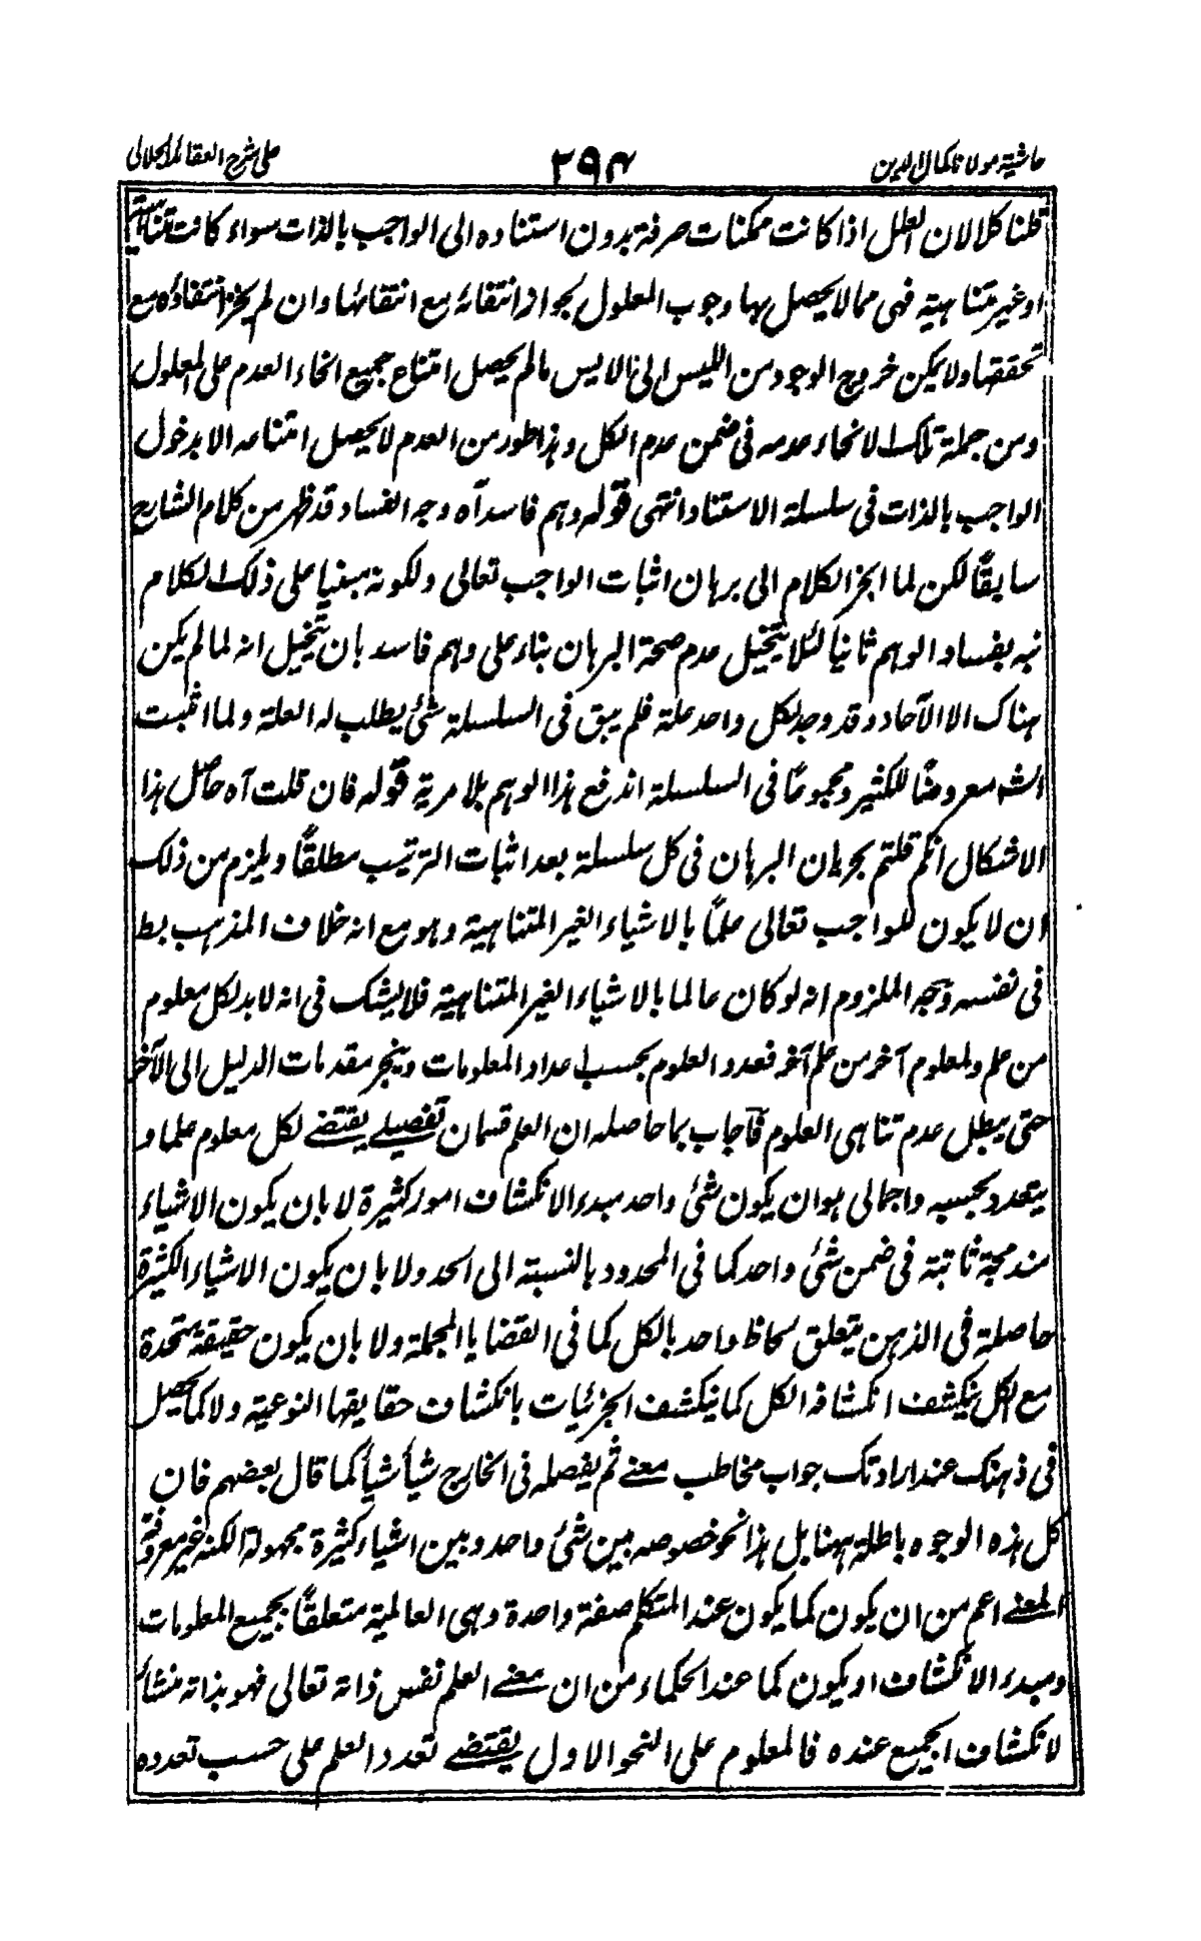 حاشية مولانا كمال الدين ٢٩٤ على شرح العقائد الجلالى
قلنا كلا لان العلل اذا كانت ممكنات صرفة بدون استناده الى الواجب بالذات سواء كانت متناهية
او غير متناهية فهى مما لا يحصل بها وجوب المعلول بجواز انتفائه مع انتفائها وان لم يجز انتفاؤه مع
تحققها ولا يمكن خروج الوجود من الليس الى الايس ما لم يحصل امتناع جميع انحاء العدم على المعلول
ومن جملة تلك الانحاء عدمه فى ضمن عدم الكل وهذا طور من العدم لا يحصل امتناعه الا بدخول
الواجب بالذات فى سلسلة الاستناد انتهى قوله وهم فاسد آه وجه الفساد قد ظهر من كلام الشارح
سابقًا لكن لما انجر الكلام الى برهان اثبات الواجب تعالى ولكونه مبنيا على ذلك الكلام
نبه بفساد الوهم ثانيًا لئلا يتخيل عدم صحة البرهان بناء على وهم فاسد بان يتخيل انه لما لم يكن
هناك الا الآحاد وقد وجد لكل واحد علة فلم يبق فى السلسلة شئ يطلب له العلة ولما اثبت
الشه معروضًا للكثير ومجموعًا فى السلسلة اندفع هذا الوهم بلا مرية قوله فان قلت آه حاصل هذا
الاشكال انكم قلتم بجريان البرهان فى كل سلسلة بعد اثبات الترتيب مطلقًا ويلزم من ذلك
ان لا يكون للواجب تعالى علمًا بالاشياء الغير المتناهية وهو مع انه خلاف المذهب بط
فى نفسه وجه الملزوم انه لو كان عالما بالاشياء الغير المتناهية فلا يشك فى انه لا بد لكل معلوم
من علم ولمعلوم آخر من علم آخر فعدد العلوم بحسب اعداد المعلومات وينجر مقدمات الدليل الى الآخر
حتى يبطل عدم تناهى العلوم فآجاب بما حاصله ان العلم قسمان تفصيلى يقتضى لكل معلوم علما و
يتعدد بحسبه واجمالى هو ان يكون شئ واحد مبدء الانكشاف امور كثيرة لا بان يكون الاشياء
مندمجة ثابتة فى ضمن شئ واحد كما فى المحدود بالنسبة الى الحد ولا بان يكون الاشياء الكثيرة
حاصلة فى الذهن يتعلق لحاظ واحد بالكل كما فى القضايا المجملة ولا بان يكون حقيقة متحدة
مع الكل ينكشف انكشافه الكل كما ينكشف الجزئيات بانكشاف حقايقها النوعية ولا كما يحصل
فى ذهنك عند ارادتك جواب مخاطب معنى ثم يفصله فى الخارج شيأ شيأ كما قال بعضهم فان
كل هذه الوجوه باطلة ههنا بل هذا نحو خصوصه بين شئ واحد وبين اشياء كثيرة مجهولة الكنه غير معروفة
المعنى اعم من ان يكون كما يكون عند المتكلم صفة واحدة وهى العالمية متعلقًا بجميع المعلومات
ومبدء الانكشاف او يكون كما عند الحكماء من ان معنى العلم نفس ذاته تعالى فهو بذاته منشأ
لانكشاف الجميع عنده فالمعلوم على النحو الاول يقتضى تعدد العلم على حسب تعدده